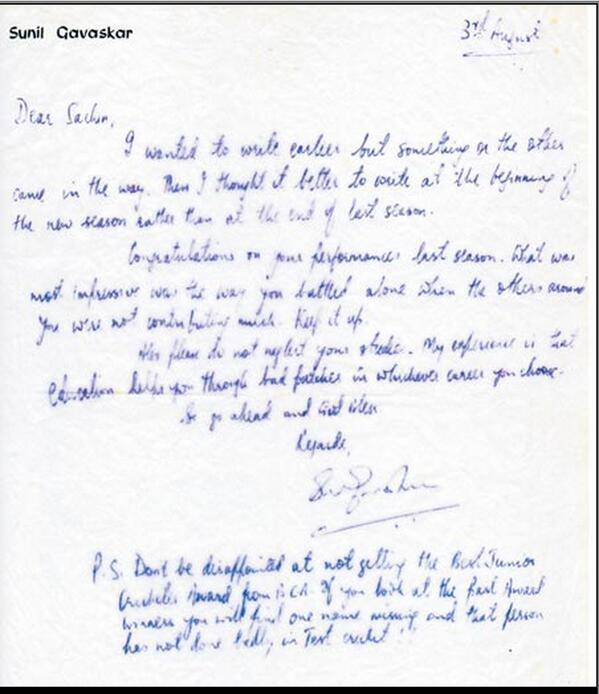 Sunil Gavaskar
3rd August
Dear Sachin,
I wanted to write earlier but something or the other
came in the way. Then I thought it better to write at the beginning of
the new season rather than at the end of last season.
Congratulations on your performances last season. What was
most impressive was the way you battled alone when the others around
you were not contributing much. Keep it up.
Also please do not neglect your studies. My experience is that
education helps you through bad patches in whichever career you choose.
So go ahead and God bless
Regards,
P.S. Don't be disappointed at not getting the Best Junior
Cricketer Award from BCA. If you look at the past Award
winners you will find one name missing and that person
has not done badly in Test cricket!!